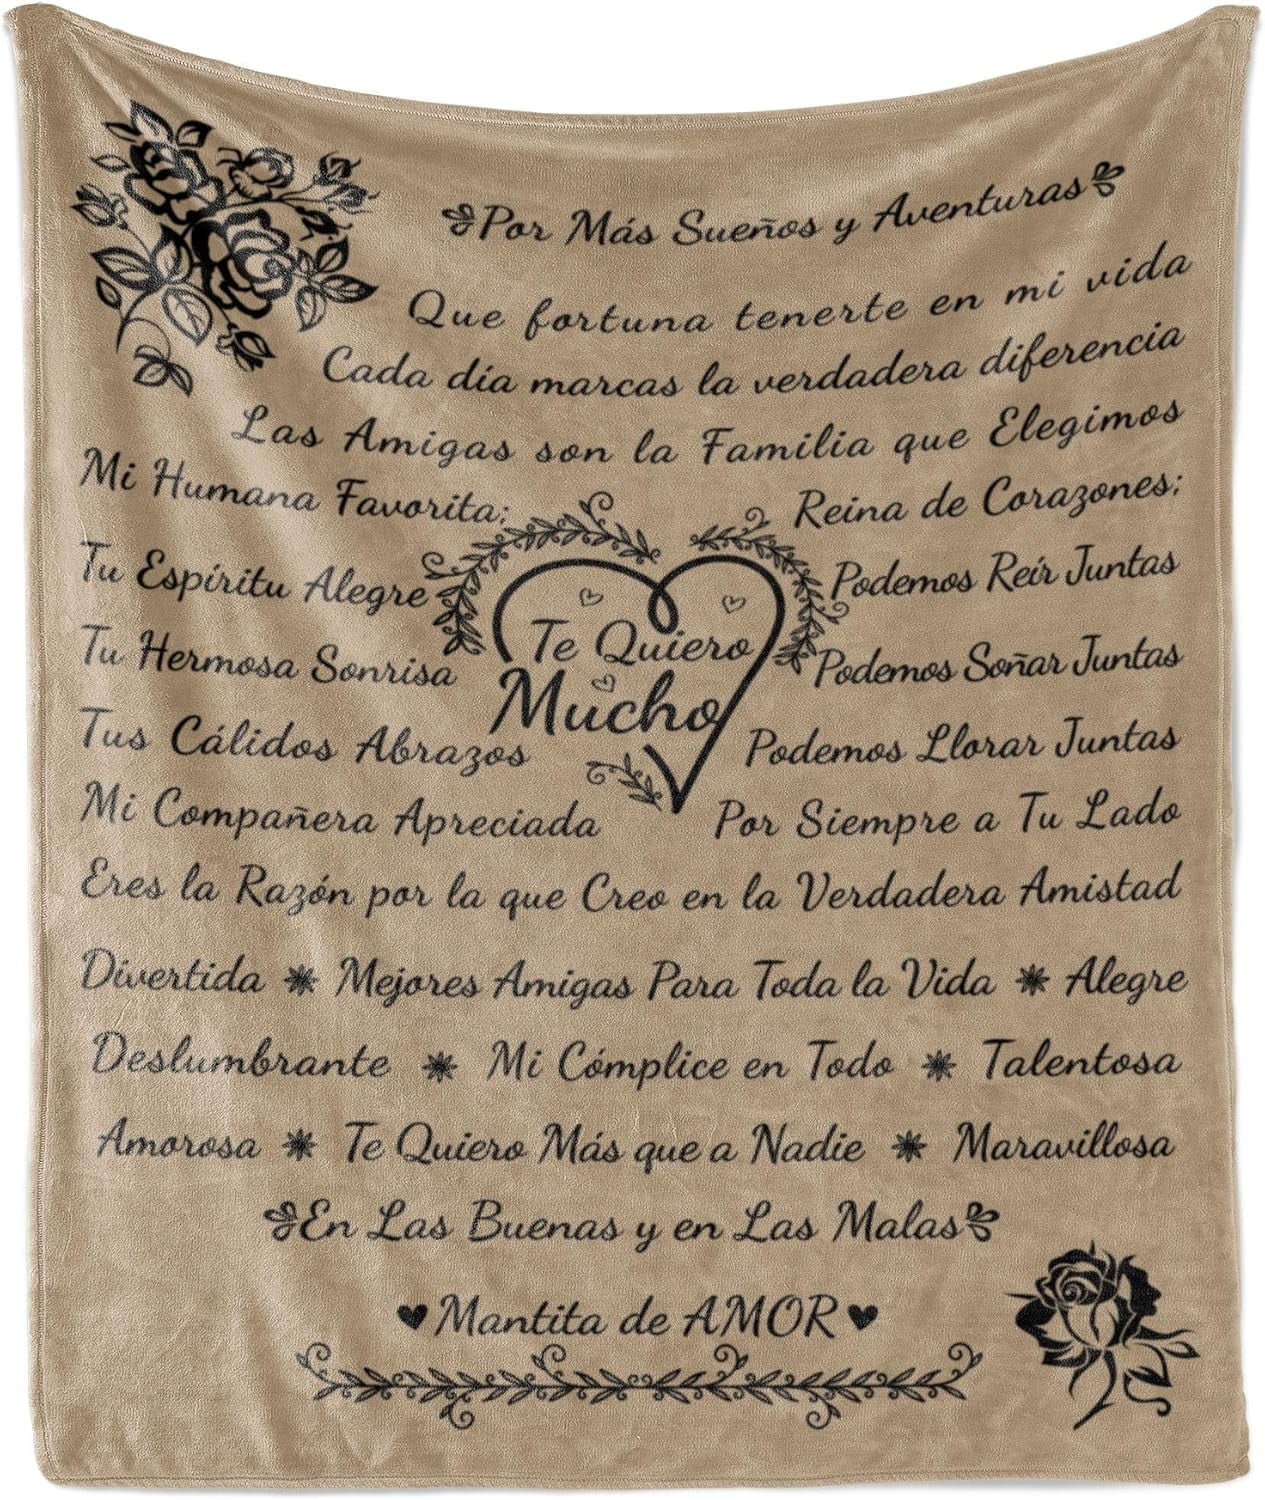 Por Más Sueños y Aventuras
Que fortuna tenerte en mi vida
Cada día marcas la verdadera diferencia
Las Amigas son la Familia que Elegimos
Mi Humana Favorita:
Tu Espíritu Alegre
Tu Hermosa Sonrisa
Tus Cálidos Abrazos
Mi Compañera Apreciada
Te Quiero
Mucho
Reina de Corazones:
Podemos Reír Juntas
Podemos Soñar Juntas
Podemos Llorar Juntas
Por Siempre a Tu Lado
Eres la Razón por la que Creo en la Verdadera Amistad
Divertida * Mejores Amigas Para Toda la Vida * Alegre
Deslumbrante * Mi Cómplice en Todo * Talentosa
Amorosa * Te Quiero Más que a Nadie * Maravillosa
En Las Buenas y en Las Malas
♥ Mantita de AMOR ♥